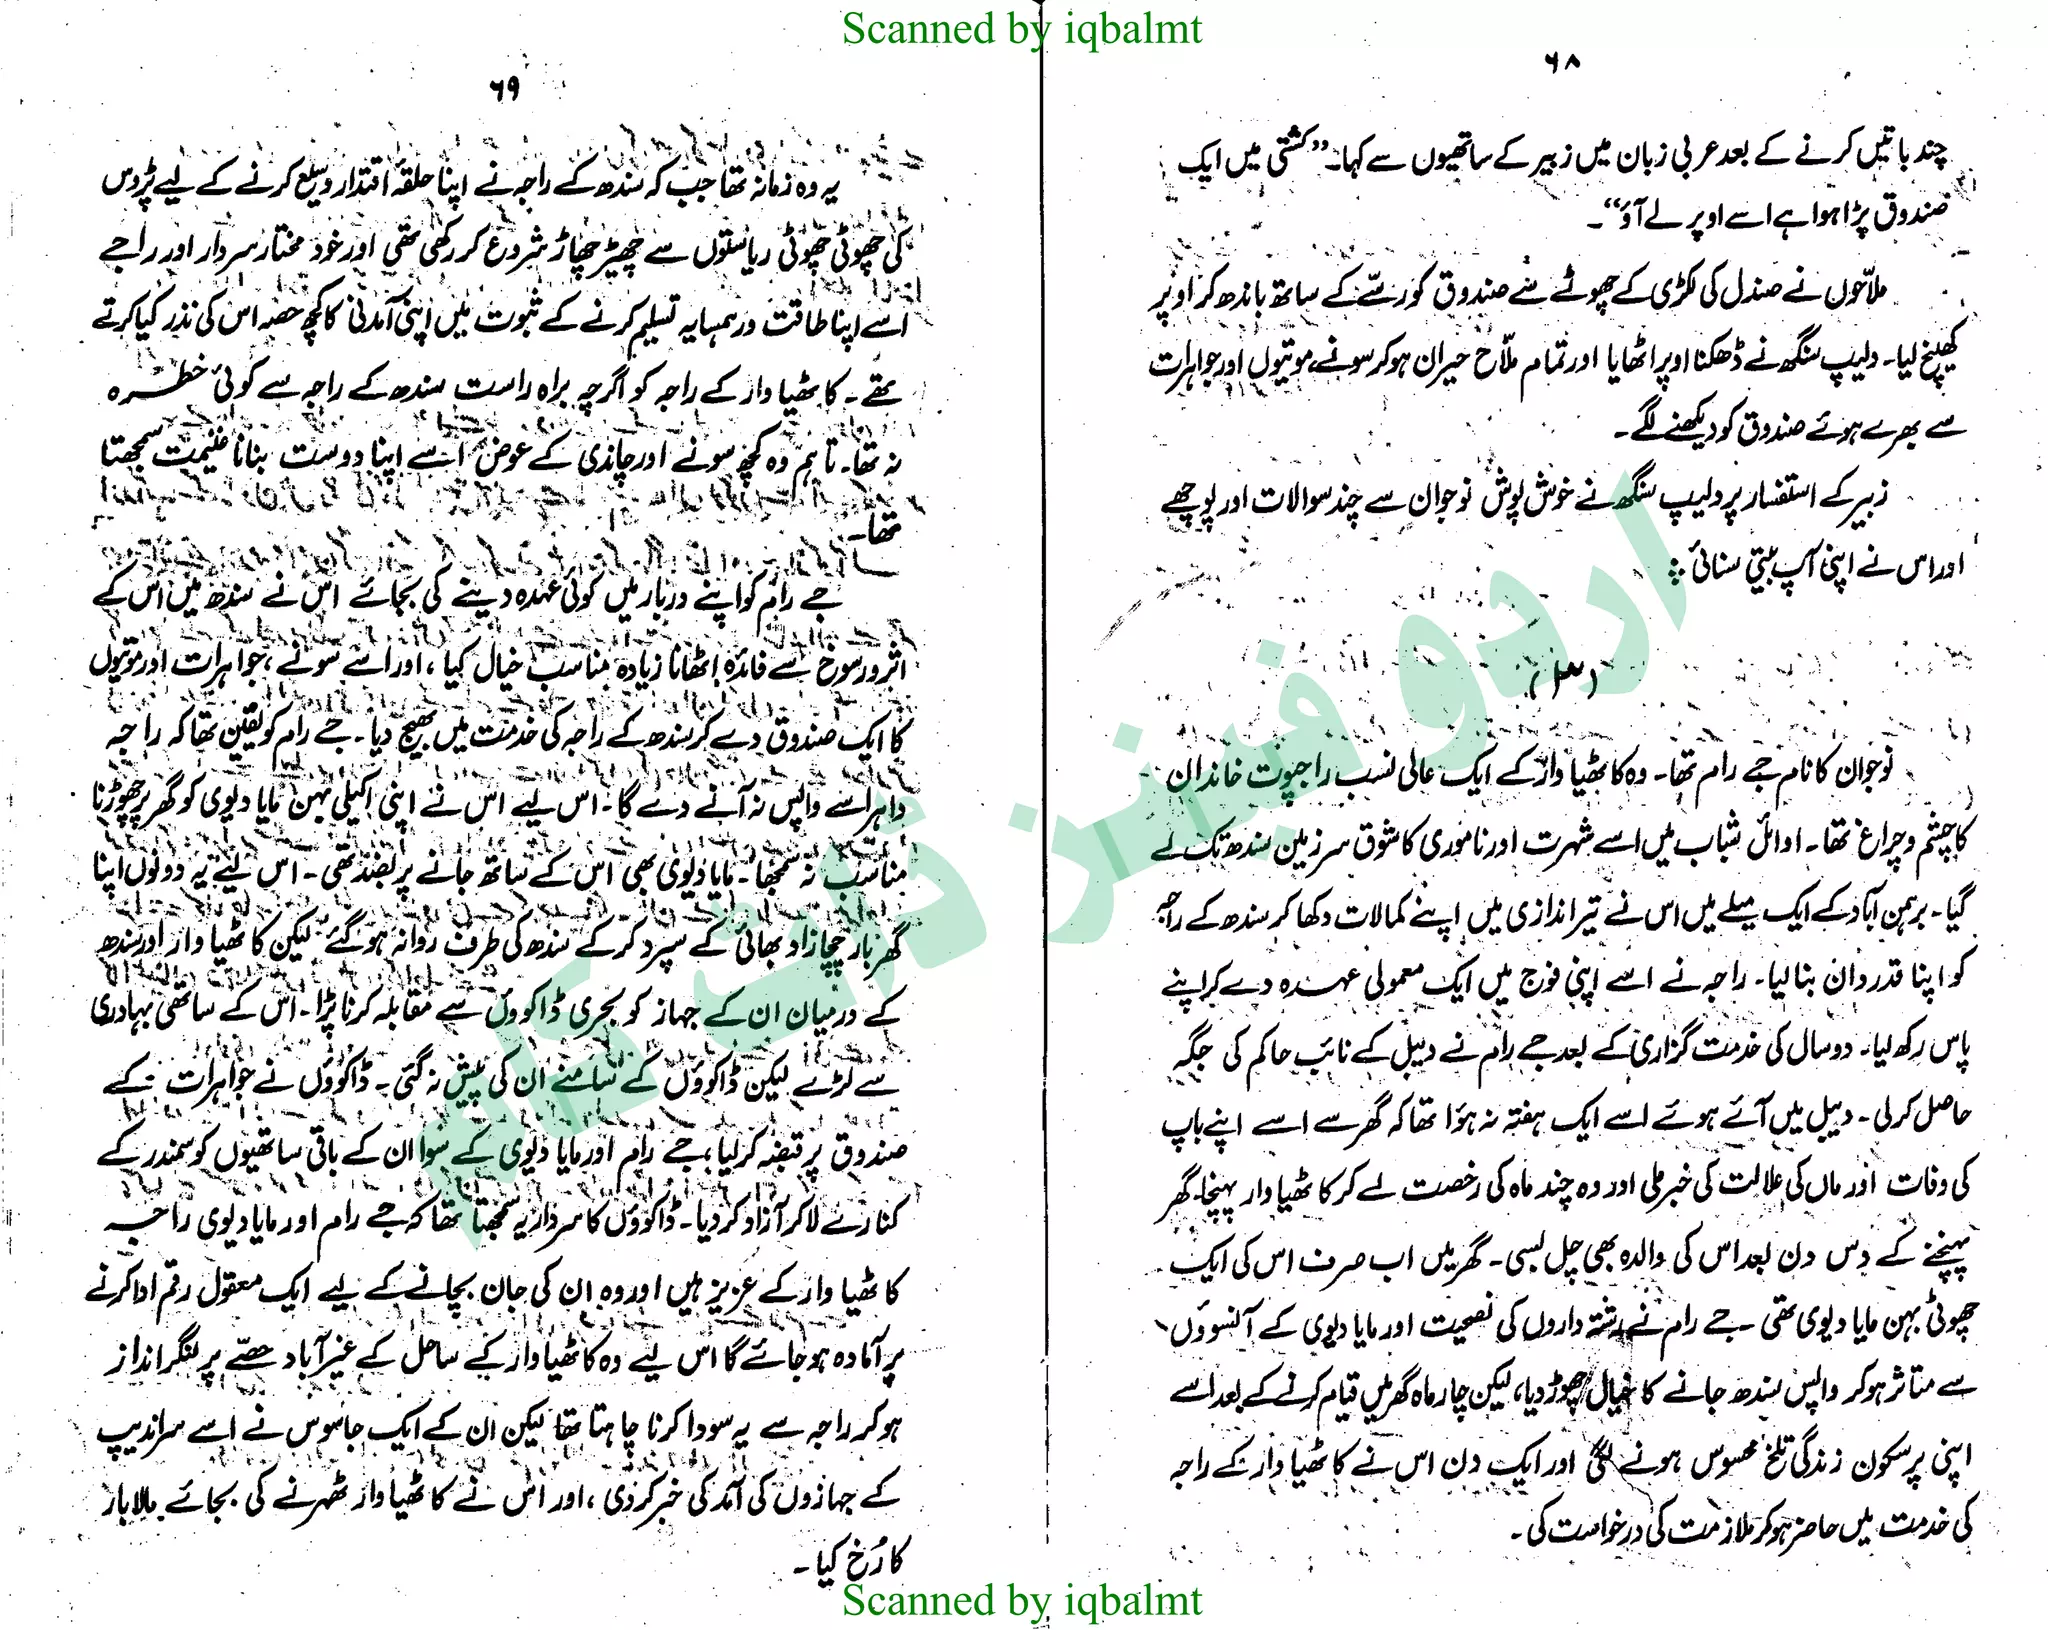 Scanned by iqbalmt
۶۸
چند باتیں کرنے کے بعد عربی زبان میں زبیر کے ساتھیوں سے کہا۔ "کشتی میں ایک
صندوق پڑا ہوا ہے اسے اوپر لے آؤ"۔
ملاّحوں نے صندل کی لکڑی کے چھوٹے سے صندوق کو رسّے کے ساتھ باندھ کر اوپر
کھینچ لیا۔ دلیپ سنگھ نے ڈھکنا اوپر اٹھایا اور تمام ملاّح حیران ہو کر سونے، موتیوں اور جواہرات
سے بھرے ہوئے صندوق کو دیکھنے لگے۔
زبیر کے استفسار پر دلیپ سنگھ نے خوش پوش نوجوان سے چند سوالات اور پوچھے
اور اس نے اپنی آپ بیتی سنائی ؞
(۳)
نوجوان کا نام جے رام تھا۔ وہ کاٹھیاوار کے ایک عالی نسب راجپوت خاندان
کا چشم و چراغ تھا۔ اوائل شباب میں اسے شہرت اور ناموری کا شوق سرزمین سندھ تک لے
گیا۔ برہمن آباد کے ایک میلے میں اس نے تیر اندازی میں اپنے کمالات دکھا کر سندھ کے راجہ
کو اپنا قدردان بنا لیا۔ راجہ نے اسے اپنی فوج میں ایک معمولی عہدہ دے کر اپنے
پاس رکھ لیا۔ دو سال کی خدمت گزاری کے بعد جے رام نے دیبل کے نائب حاکم کی جگہ
حاصل کر لی۔ دیبل میں آئے ہوئے اسے ایک ہفتہ نہ ہؤا تھا کہ گھر سے اسے اپنے باپ
کی وفات اور ماں کی علالت کی خبر ملی اور وہ چند ماہ کی رخصت لے کر کاٹھیاوار پہنچا۔ گھر
پہنچنے کے دس دن بعد اس کی والدہ بھی چل بسی۔ گھر میں اب صرف اس کی ایک
چھوٹی بہن مایا دیوی تھی۔ جے رام نے رشتہ داروں کی نصیحت اور مایا دیوی کے آنسوؤں
سے متاثر ہو کر واپس سندھ جانے کا خیال چھوڑ دیا، لیکن چار ماہ گھر میں قیام کرنے کے بعد اسے
اپنی پرسکون زندگی تلخ محسوس ہونے لگی اور ایک دن اس نے کاٹھیاوار کے راجہ
کی خدمت میں حاضر ہو کر ملازمت کی درخواست کی۔
۶۹
یہ وہ زمانہ تھا جب کہ سندھ کے راجہ نے اپنا حلقۂ اقتدار وسیع کرنے کے لیے پڑوس
کی چھوٹی چھوٹی ریاستوں سے چھیڑ چھاڑ شروع کر رکھی تھی اور خود مختار سردار اور راجے
اسے اپنا طاقت ور ہمسایہ تسلیم کرنے کے ثبوت میں اپنی آمدنی کا کچھ حصہ اس کی نذر کیا کرتے
تھے۔ کاٹھیاوار کے راجہ کو اگرچہ براہ راست سندھ کے راجہ سے کوئی خطرہ
نہ تھا۔ تاہم وہ کچھ سونے اور چاندی کے عوض اسے اپنا دوست بنانا غنیمت سمجھتا
تھا۔
جے رام کو اپنے دربار میں کوئی عہدہ دینے کی بجائے اس نے سندھ میں اس کے
اثر و رسوخ سے فائدہ اٹھانا زیادہ مناسب خیال کیا، اور اسے سونے، جواہرات اور موتیوں
کا ایک صندوق دے کر سندھ کے راجہ کی خدمت میں بھیج دیا۔ جے رام کو یقین تھا کہ راجہ
داہر اسے واپس نہ آنے دے گا۔ اس لیے اس نے اپنی اکیلی بہن مایا دیوی کو گھر پر چھوڑنا
مناسب نہ سمجھا۔ مایا دیوی بھی اس کے ساتھ جانے پر بضد تھی۔ اس لیے یہ دونوں اپنا
گھر بار چچا زاد بھائی کے سپرد کر کے سندھ کی طرف روانہ ہو گئے لیکن کاٹھیاوار اور سندھ
کے درمیان ان کے جہاز کو بحری ڈاکوؤں سے مقابلہ کرنا پڑا۔ اس کے ساتھی بہادری
سے لڑے لیکن ڈاکوؤں کے سامنے ان کی پیش نہ گئی۔ ڈاکوؤں نے جواہرات کے
صندوق پر قبضہ کر لیا، جے رام اور مایا دیوی کے سوا ان کے باقی ساتھیوں کو سمندر کے
کنارے لا کر آزاد کر دیا۔ ڈاکوؤں کا سردار یہ سمجھتا تھا کہ جے رام اور مایا دیوی راجہ
کاٹھیاوار کے عزیز ہیں اور وہ ان کی جان بچانے کے لیے ایک معقول رقم ادا کرنے
پر آمادہ ہو جائے گا اس لیے وہ کاٹھیاوار کے ساحل کے غیر آباد حصّے پر لنگر انداز
ہو کر راجہ سے یہ سودا کرنا چاہتا تھا لیکن ان کے ایک جاسوس نے اسے سراندیپ
کے جہازوں کی آمد کی خبر کر دی، اور اس نے کاٹھیاوار ٹھہرنے کی بجائے مالابار
کا رُخ کیا۔
اردو فینز ڈاٹ کام
Scanned by iqbalmt